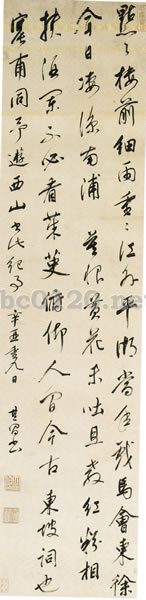 點々樓前細雨重々江外平湖當年戲馬會東徐
今日凄涼南浦 莫恨黃花未吐且教紅粉相
扶酒闌不必看茱萸俯仰人間今古東坡詞也
甫同予遊西山書此紀事 辛亥九日 其昌書